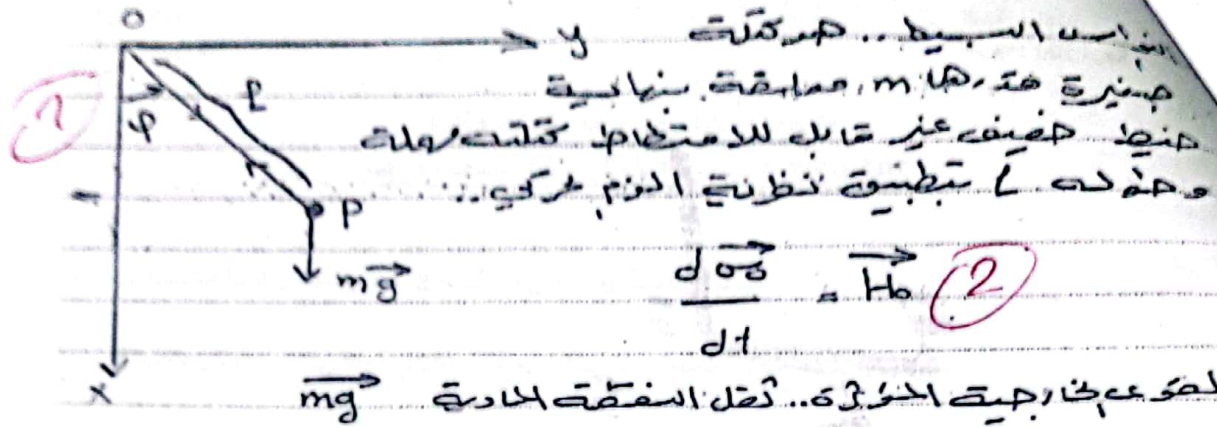 O
y
النواس البسيط.. هو كتلة
صغيرة قدرها m معلقة بنهاية
φ
l
خيط خفيف غير قابل للامتطاط كتلته مهملة
وطوله l بتطبيق نظرية العزم الحركي..
P
mg
dσ₀/dt = H₀
1
2
x
القوى الخارجية المؤثرة.. ثقل النقطة المادية mg